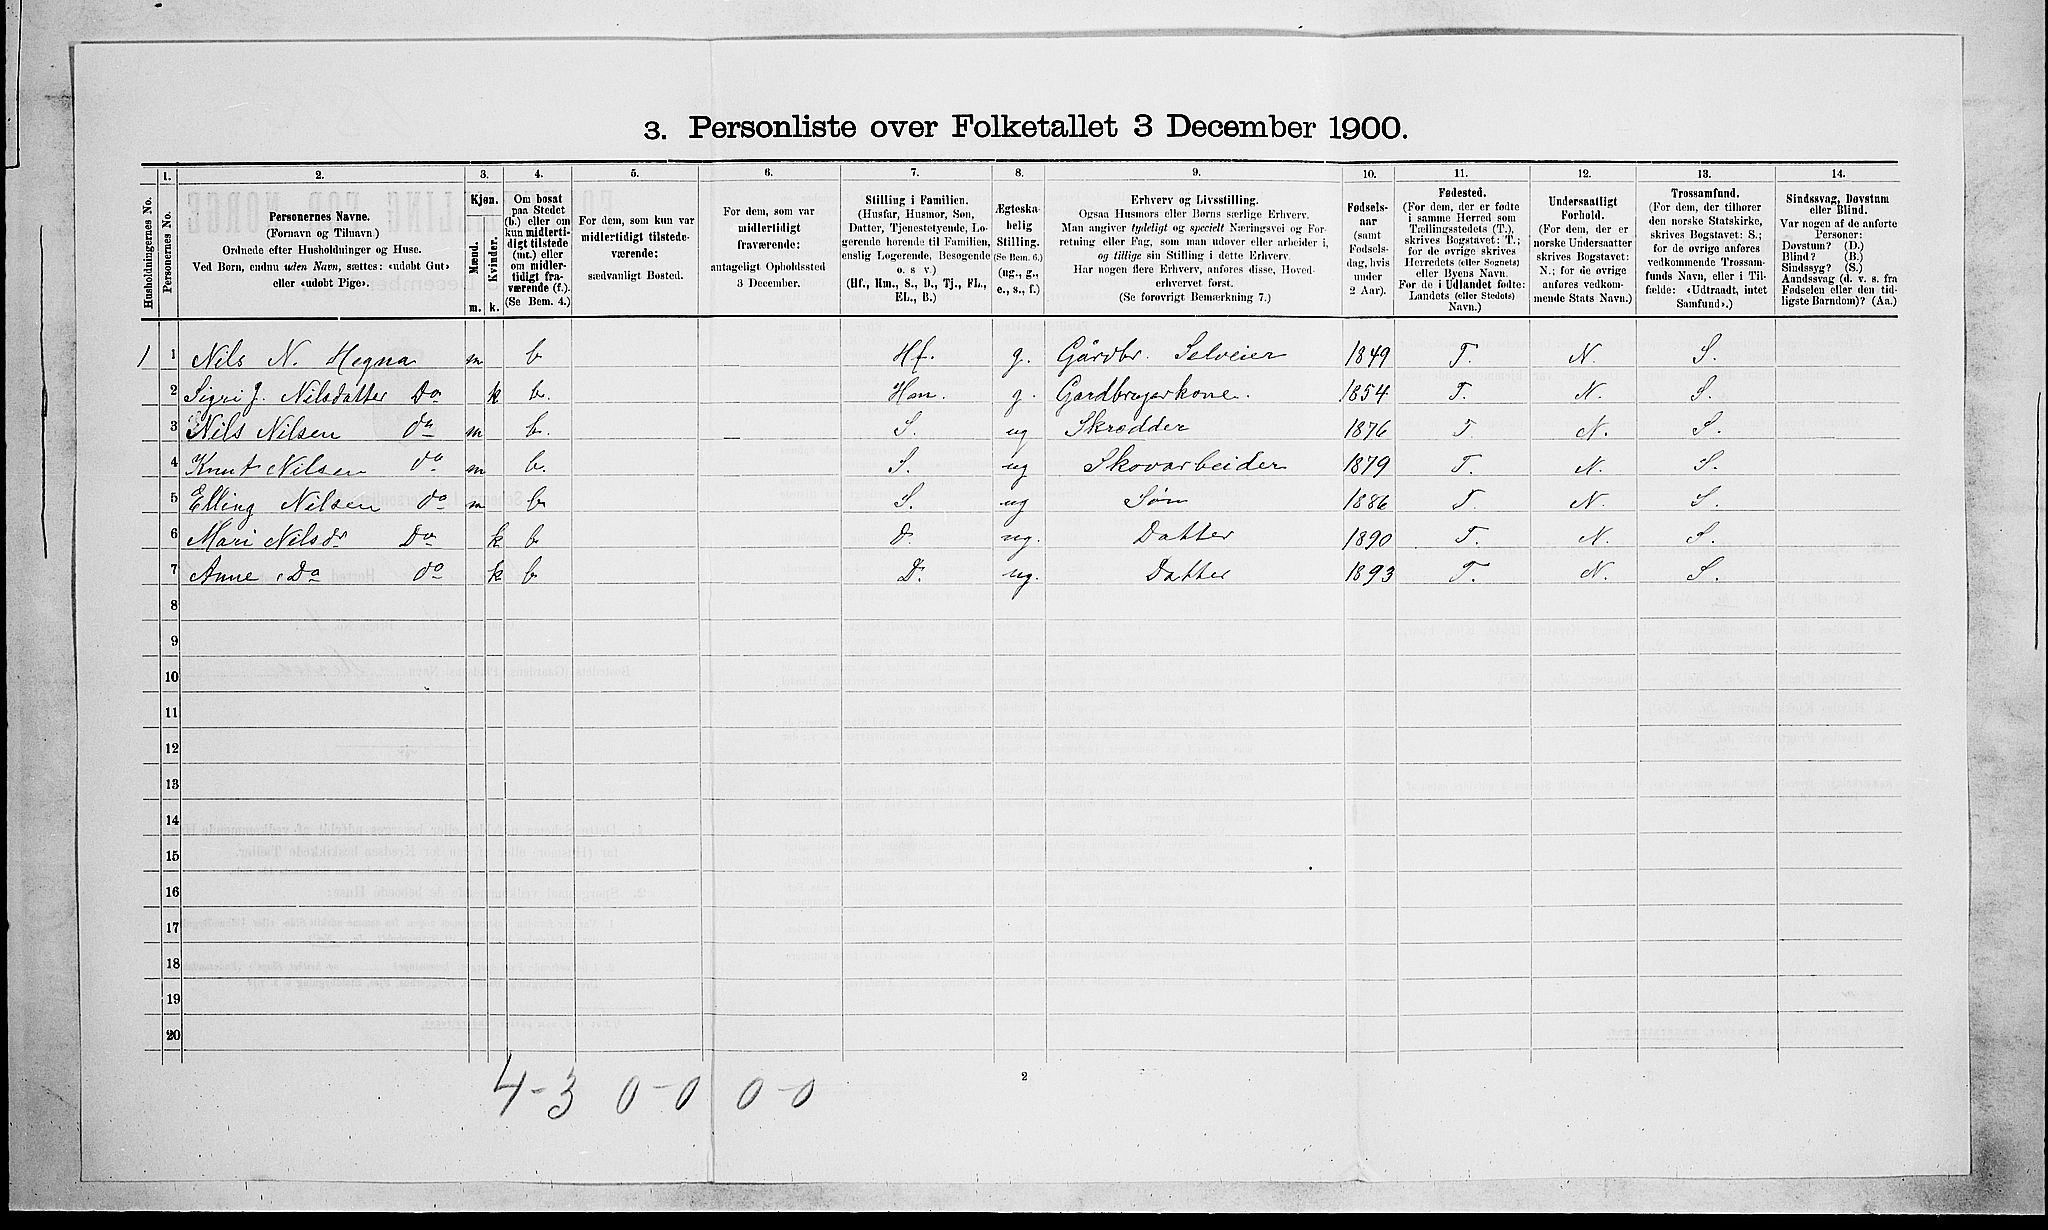 3. Personliste over Folketallet 3 December 1900.
Husholdningernes No.
1. Personernes No.
2. Personernes Navne. (Fornavn og Tilnavn.) Ordnede efter Husholdninger og Huse. Ved Børn, endnu uden Navn, sættes: «udøbt Gut» eller «udøbt Pige».
3. Kjøn. Mænd. m. Kvinder. k.
4. Om bosat paa Stedet (b.) eller om kun midlertidigt tilstede (mt.) eller om midlertidigt fraværende (f.). (Se Bem. 4.)
5. For dem, som kun var midlertidigt tilstedeværende: sædvanligt Bosted.
6. For dem, som var midlertidigt fraværende: antageligt Opholdssted 3 December.
7. Stilling i Familien. (Husfar, Husmor, Søn, Datter, Tjenestetyende, Logerende hørende til Familien, enslig Logerende, Besøgende o. s v.) (Hf., Hm., S., D., Tj., FL., EL., B.)
8. Ægteskabelig Stilling. (Se Bem. 6.) (ug., g., e., s., f.)
9. Erhverv og Livsstilling. Ogsaa Husmors eller Børns særlige Erhverv. Man angiver tydeligt og specielt Næringsvei og Forretning eller Fag, som man udøver eller arbeider i, og tillige sin Stilling i dette Erhverv. Har nogen flere Erhverv, anføres disse, Hovederhvervet først. (Se forøvrigt Bemærkning 7.)
10. Fødselsaar (samt Fødselsdag, hvis under 2 Aar).
11. Fødested. (For dem, der er fødte i samme Herred som Tællingsstedets (T.), skrives Bogstavet: T.; for de øvrige skrives Herredets (eller Sognets) eller Byens Navn. For de i Udlandet fødte: Landets (eller Stedets) Navn.)
12. Undersaatligt Forhold. (For dem, der er norske Undersaatter skrives Bogstavet: N.; for de øvrige anføres vedkommende Stats Navn.)
13. Trossamfund. (For dem, der tilhører den norske Statskirke, skrives Bogstavet: S.; for de øvrige anføres vedkommende Trossamfunds Navn, eller i Tilfælde: «Udtraadt, intet Samfund».)
14. Sindssvag, Døvstum eller Blind. Var nogen af de anførte Personer: Døvstum? (D.) Blind? (B.) Sindssyg? (S.) Aandssvag (d. v. s. fra Fødselen eller den tidligste Barndom)? (Aa.)
1 1 Nils N. Hegna m b Hf. g. Gårdbr. Selveier 1849 T. N. S.
2 Sigri J. Nilsdatter Do k b. Hm. g. Gardbrugerkone. 1854 T. N. S.
3 Nils Nilsen do m b. S. ug Skrædder 1876 T. N. S.
4 Knut Nilsen do m b. S. ug Skovarbeider 1879 T. N. S.
5 Elling Nilsen do m b S. ug Søn 1886 T. N. S.
6 Mari Nilsdr Do k b d. ug. Datter 1890 T. N. S.
7 Anne Do do k b D. ug. Datter 1893 T. N. S.
8
9
10
11
12
13
14
15
16
17
18
19
20
2
4-3 0-0 0-0